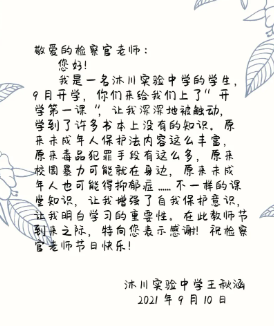 敬爱的检察官老师：
您好!
我是一名沐川实验中学的学生，
9月开学，你们来给我们上了“开
学第一课“，让我深深地被触动，
学到了许多书本上没有的知识。原
来未成年人保护法内容这么丰富，
原来毒品犯罪手段有这么多，原来
校园暴力可能就在身边，原来未成
年人也可能得抑郁症……不一样的课
堂知识，让我增强了自我保护意识，
让我明白学习的重要性。在此教师节
到来之际，特向您表示感谢! 祝检察
官老师节日快乐!
沐川实验中学王秋涵
2021年9月10日